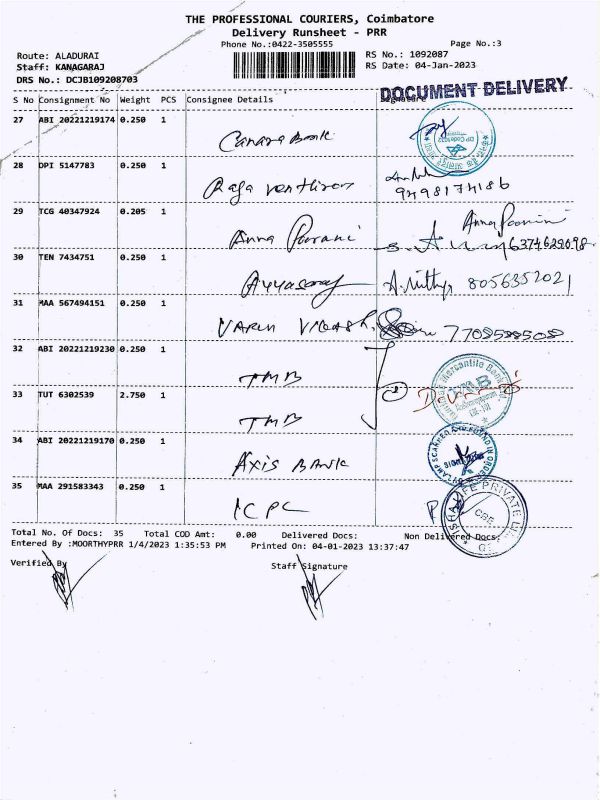 THE PROFESSIONAL COURIERS, Coimbatore
Delivery Runsheet - PRR
Phone No.:0422-3505555
Page No.:3
Route: ALADURAI
RS No.: 1092087
Staff: KANAGARAJ
RS Date: 04-Jan-2023
DRS No.: DCJB109208703
DOCUMENT DELIVERY
S No Consignment No Weight PCS Consignee Details Signature
27 ABI 20221219174 0.250 1
Canara Bank
28 DPI 5147783 0.250 1
Raja
9498174186
29 TCG 40347924 0.205 1
Anna Poorani
6374629098
30 TEN 7434751 0.250 1
Ayyasamy
8056352021
31 MAA 567494151 0.250 1
VARUN
32 ABI 20221219230 0.250 1
TMB
33 TUT 6302539 2.750 1
TMB
34 ABI 20221219170 0.250 1
AXIS BANK
35 MAA 291583343 0.250 1
ICPL
Total No. Of Docs: 35 Total COD Amt: 0.00 Delivered Docs: Non Delivered Docs:
Entered By :MOORTHYPRR 1/4/2023 1:35:53 PM Printed On: 04-01-2023 13:37:47
Verified By
Staff Signature